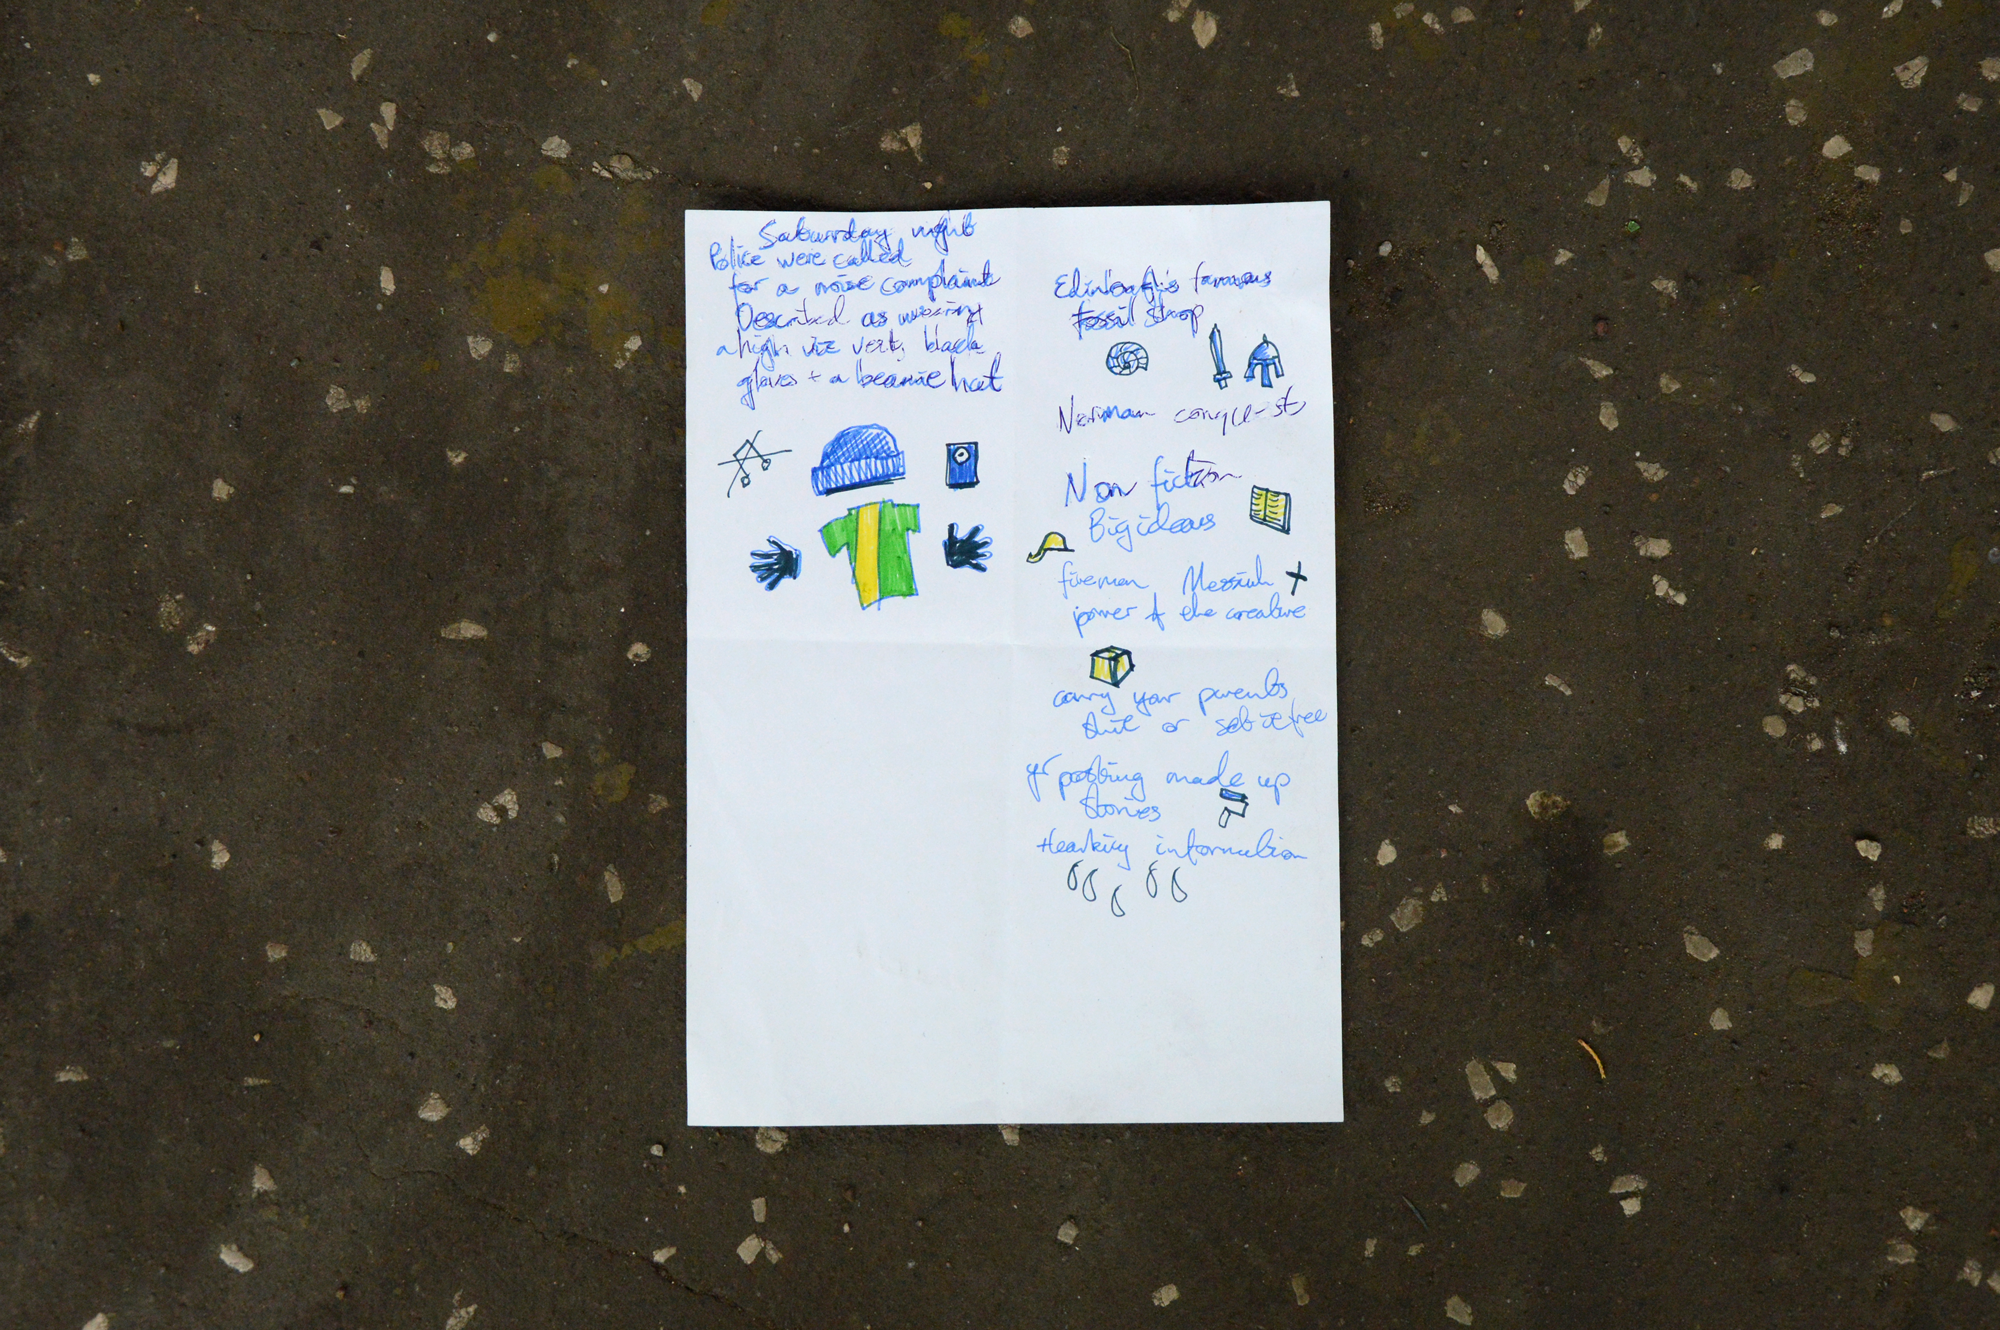 Saturday night
Police were called
for a noise complaint
Described as wearing
a high viz vert, black
gloves + a beanie hat
Edinburgh's famous
fossil shop
Norman conquests
Non fiction
Big ideas
fireman Messiah
power of the creative
carry your parents
shit or set it free
yr posting made up
stories
Healing information